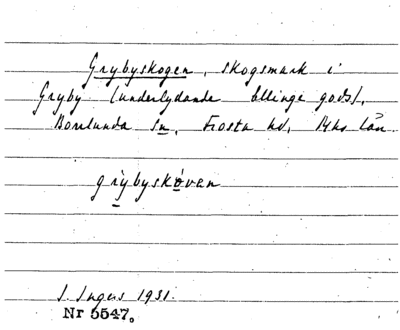 Grybyskogen, skogsmark i
Gryby (underlydande Ellinge gods),
Borrlunda sn, Frosta hd, Mhs län.
grỳbyskóvan
I. Ingers 1931.
Nr 5547.